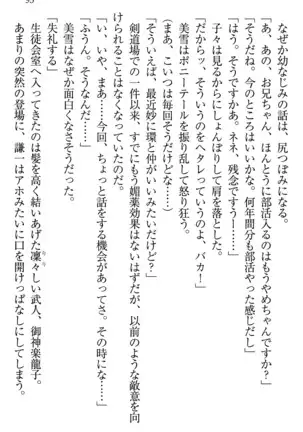 95
なぜか幼なじみの話は、尻つぼみになる。
「あ、あの、お兄ちゃん、ほんとうに部活入るのはもうやめちゃんですか?」
「そうだね。今のところはいいかな。何年間分も部活やった感じだし」
「はう。そうですかぁ。ネネ、残念ですうー……」
子々は見るからにしょんぼりして肩を落とした。
「だからッ。そういうのをヘタレっていうのよ、バカ!」
美雪はポニーテールを振り乱して怒り狂う。
(まあ、こいつは毎回そうだけどな……)
「そういえば、最近妙に環と仲がいいみたいだけど?」
剣道場での一件以来、すでにもう媚薬効果はないはずだが、以前のような敵意を向
けられることはなくなっていたのだ。
「い、いや、まあ……今回、ちょっと話をする機会があってさ。その時にな……」
「ふうん。そうなんだ……」
美雪はなぜか面白くなさそうだった。
「失礼する!」
生徒会室へ入ってきたのは髪を高く結いあげた凜々しい武人、御神楽龍子。
あまりの突然の登場に、謙一はアホみたいに口を開けっぱなしにしてしまう。